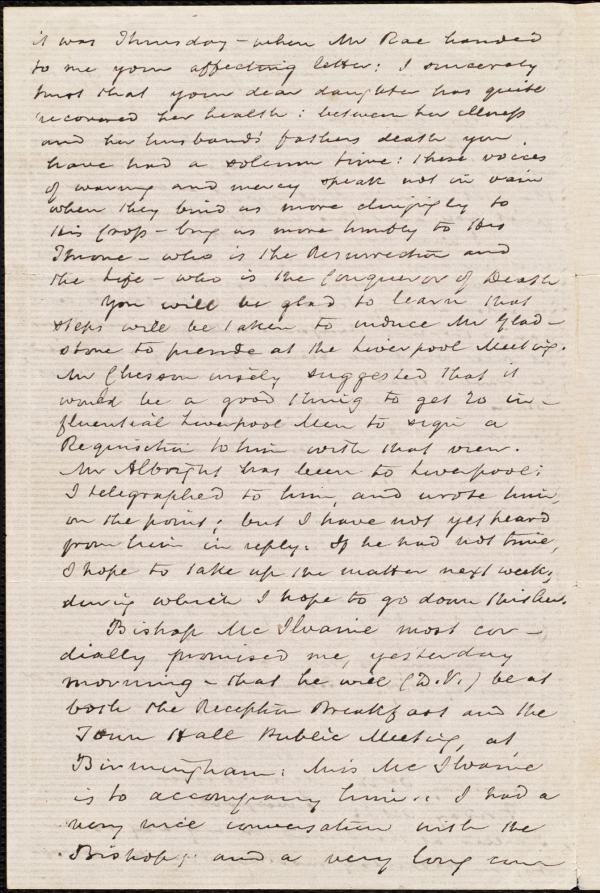 it was Thursday – when Mr Rae handed
to me your affecting letter: I sincerely
trust that your dear daughter has quite
recovered her health: between her illness
and her husband's fathers death you
have had a solemn time: these voices
of warning and mercy speak not in vain
when they bind us more clingigly to
His Cross – bring us more humbly to His
Throne – who is the Resurrection and
the Life – who is the Conqueror of Death
You will be glad to learn that
steps will be taken to induce Mr Glad-
stone to preside at the Liverpool Meeting.
Mr Chesson wisely suggested that it
would be a good thing to get 20 in-
fluential Liverpool Men to sign a
Requisition to him with that view.
Mr Albright has been to Liverpool:
I telegraphed to him, and wrote him,
on the point; but I have not yet heard
from him in reply. If he had not time,
I hope to take up the matter next week,
during which I hope to go down thither.
Bishop McIlvaine most cor-
dially promised me, yesterday
morning – that he will (D.V.) be at
both the Reception Breakfast and the
Town Hall Public Meeting, at
Birmingham: Miss McIlvaine
is to accompany him: I had a
very nice conversation with the
Bishop; and a very long one